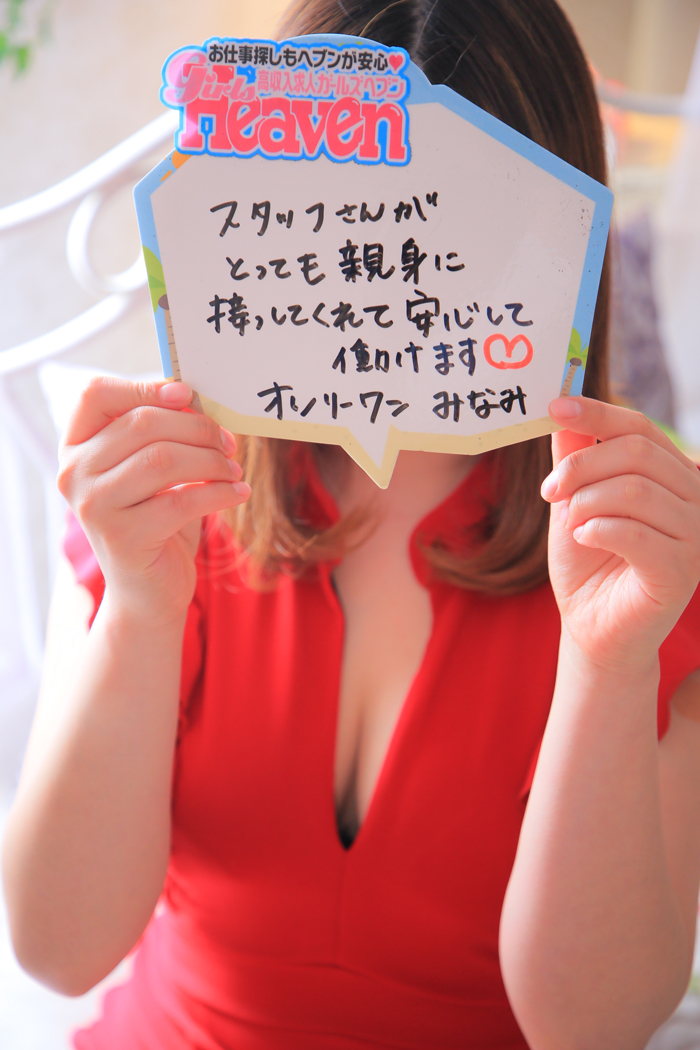 お仕事探しもヘブンが安心♥
girls
高収入求人ガールズヘブン
Heaven
スタッフさんが
とっても親身に
接っしてくれて安心して
働けます♡
オンリーワン みなみ